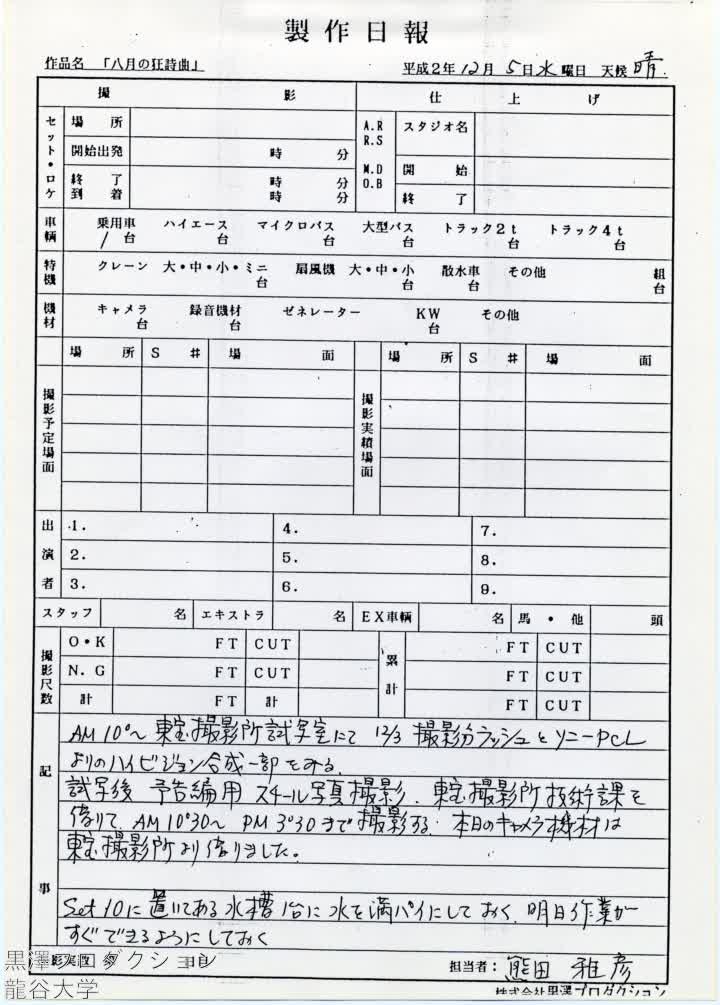 製作日報
作品名 「八月の狂詩曲」 平成2年12月5日水曜日 天候 晴.
撮 影 仕 上 げ
セット・ロケ 場 所 A.R R.S M.D O.B スタジオ名
開始出発 時 分 開 始
終 了 時 分 終 了
到 着 時 分
車輌 乗用車 ハイエース マイクロバス 大型バス トラック2t トラック4t
1台 台 台 台 台 台
特機 クレーン 大・中・小・ミニ 扇風機 大・中・小 散水車 その他 組
台 台 台 台
機材 キャメラ 録音機材 ゼネレーター KW その他
台 台 台
場 所 S # 場 面 場 所 S # 場 面
撮影予定場面 撮影実績場面
出演者 1. 4. 7.
2. 5. 8.
3. 6. 9.
スタッフ 名 エキストラ 名 EX車輌 名 馬・他 頭
撮影尺数 O・K FT CUT 累計 FT CUT
N.G FT CUT FT CUT
計 FT 計 FT CUT
記事
AM10°~ 東宝撮影所試写室にて 12/3 撮影分ラッシュとソニーPCL
よりのハイビジョン合成一部をみる.
試写後 予告編用 スチール写真撮影. 東宝撮影所技術課を
借りて. AM10°30~ PM3°30まで撮影する. 本日のキャメラ機材は
東宝撮影所より借りました。
Set10に置いてある水槽1台に水を満パイにしておく. 明日作業が
すぐできるようにしておく
担当者: 熊田 雅彦
株式会社黒澤プロダクション
黒澤プロダクション
龍谷大学